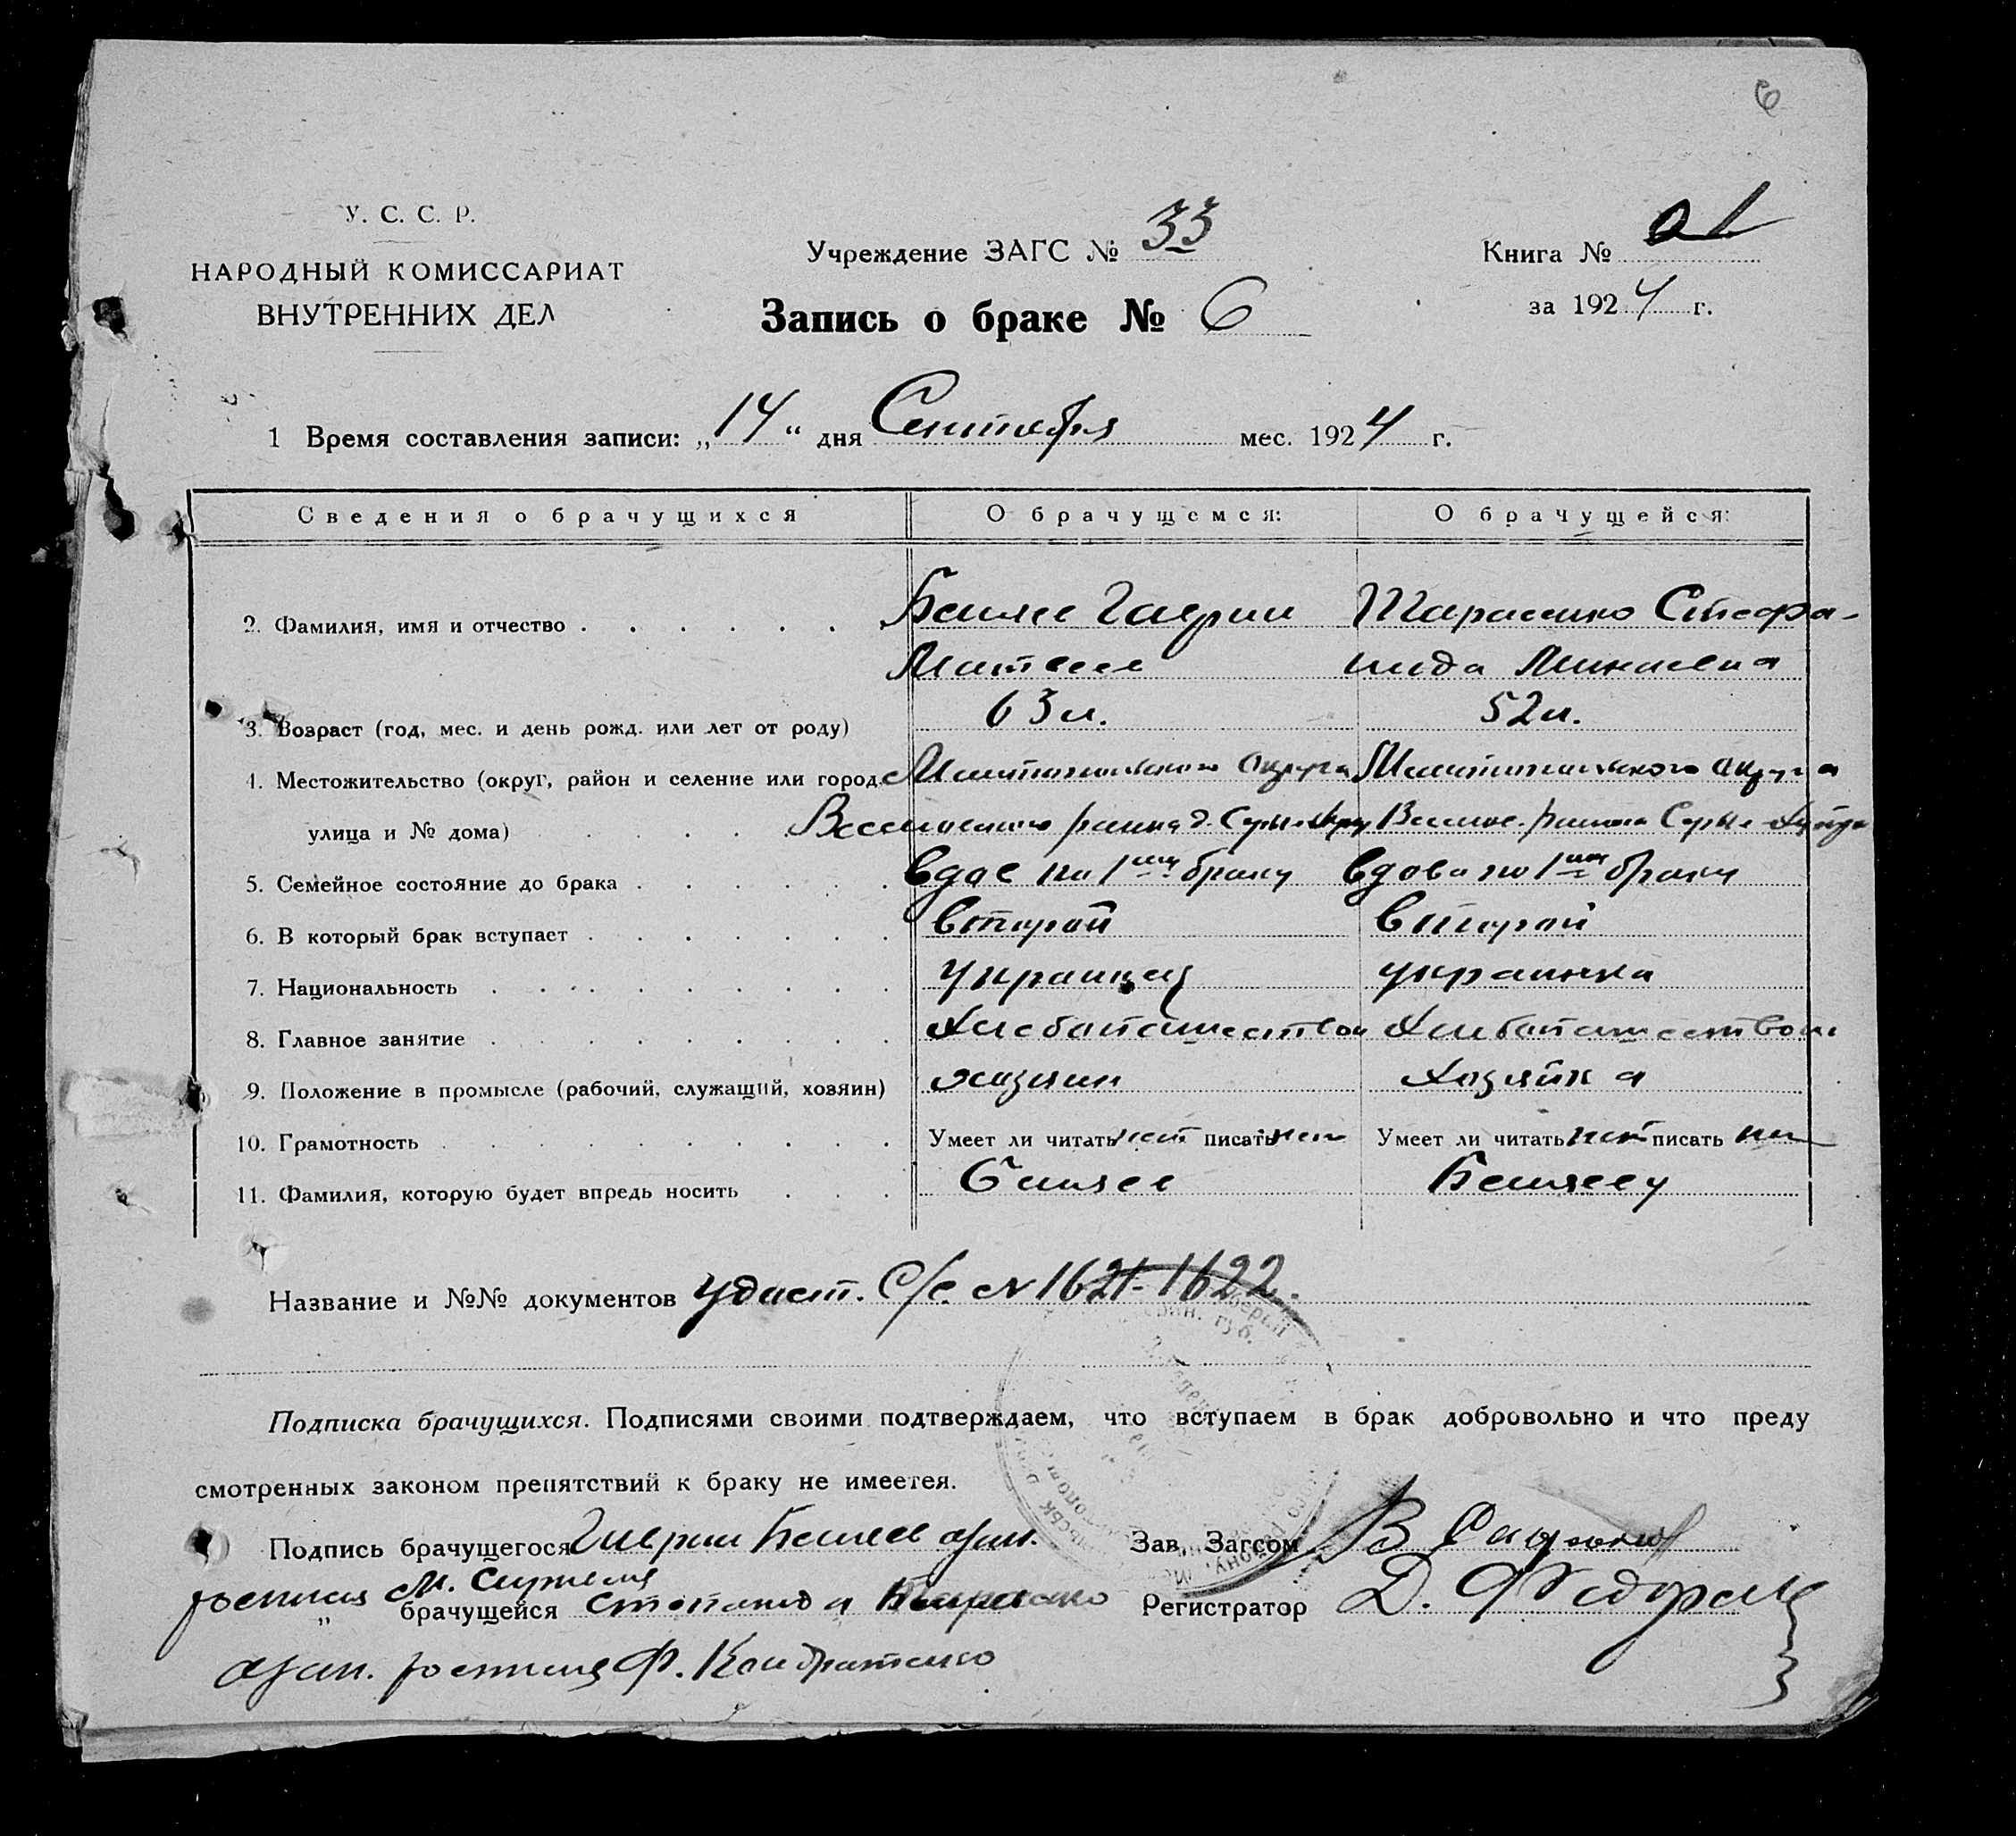 6
У. С. С. Р.
НАРОДНЫЙ КОМИССАРИАТ
ВНУТРЕННИХ ДЕЛ
Учреждение ЗАГС № 33
Запись о браке № 6
Книга №
за 1924 г.
1 Время составления записи: „14“ дня Сентября мес. 1924 г.
Сведения о брачущихся О брачущемся: О брачущейся:
2. Фамилия, имя и отчество Гаврил Тарасенко Стефа-
Матвеев нида Минаевна
3. Возраст (год, мес. и день рожд. или лет от роду) 63 л. 52 л.
4. Местожительство (округ, район и селение или город, Мелитопольского округа Мелитопольского округа
улица и № дома) района д. района
5. Семейное состояние до брака вдов по 1му браку вдова по 1му браку
6. В который брак вступает второй второй
7. Национальность украинец украинка
8. Главное занятие Хлебопашеством Хлебопашеством
9. Положение в промысле (рабочий, служащий, хозяин) хозяин Хозяйка
10. Грамотность Умеет ли читать нет писать нет Умеет ли читать нет писать нет
11. Фамилия, которую будет впредь носить
Название и №№ документов удост. С/с. № 1621-1622.
Подписка брачущихся. Подписями своими подтверждаем, что вступаем в брак добровольно и что преду
смотренных законом препятствий к браку не имеется.
Подпись брачущегося Гаврил Зав. Загсом В
росписал М. „ брачущейся Степанида Тарасенко Регистратор Д.
Ф. Кондратенко